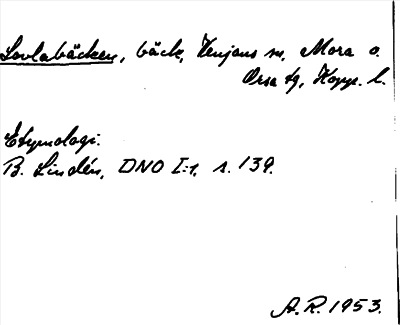 Sovlabäcken, bäck, Venjans sn, Mora o.
Orsa tg, Kopp. l.
Etymologi:
B. Lindén, DNO I:1, s. 139.
A.R. 1953.